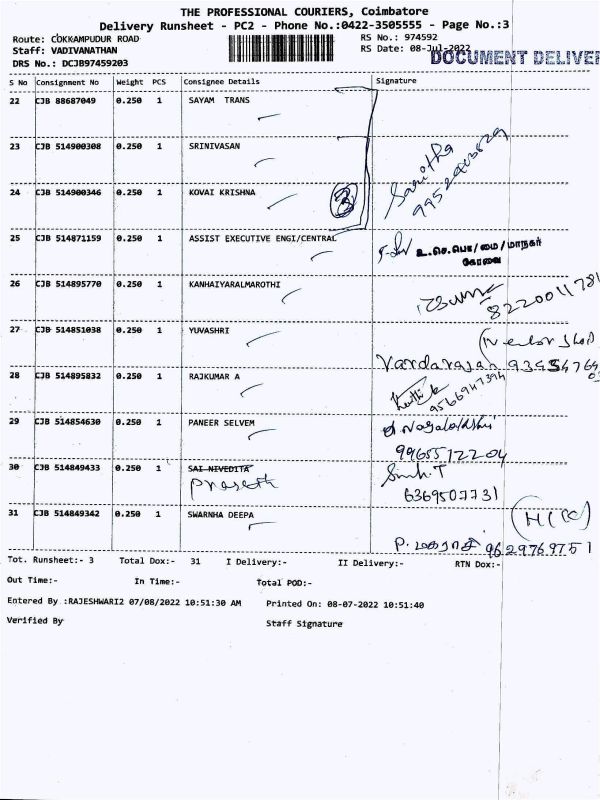 THE PROFESSIONAL COURIERS, Coimbatore
Delivery Runsheet - PC2 - Phone No.:0422-3505555 - Page No.:3
Route: COKKAMPUDUR ROAD
RS No.: 974592
Staff: VADIVANATHAN
RS Date: 08-Jul-2022
DOCUMENT DELIVER
DRS No.: DCJB97459203
S No Consignment No Weight PCS Consignee Details Signature
22 CJB 88687049 0.250 1 SAYAM TRANS
23 CJB 514900308 0.250 1 SRINIVASAN
24 CJB 514900346 0.250 1 KOVAI KRISHNA 3
25 CJB 514871159 0.250 1 ASSIST EXECUTIVE ENGI/CENTRAL உ.செ.பொ/மை/மாநகர்
கோவை
26 CJB 514895770 0.250 1 KANHAIYARALMAROTHI
8220011781
27 CJB 514851038 0.250 1 YUVASHRI
Vardarajan
28 CJB 514895832 0.250 1 RAJKUMAR A Karthik
9566947394
29 CJB 514854630 0.250 1 PANEER SELVEM
9965512204
30 CJB 514849433 0.250 1 SAI NIVEDITA
Prasath
6369507731
31 CJB 514849342 0.250 1 SWARNHA DEEPA
9629769751
Tot. Runsheet:- 3 Total Dox:- 31 I Delivery:- II Delivery:- RTN Dox:-
Out Time:- In Time:- Total POD:-
Entered By :RAJESHWARI2 07/08/2022 10:51:30 AM Printed On: 08-07-2022 10:51:40
Verified By Staff Signature